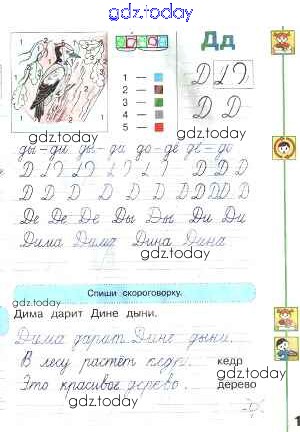 gdz.today
2 1 2
1 —
2 —
3 —
4 —
5 —
Дд
Д
Д Д
gdz.today
gdz.today
ды – ди ды – ди до – де де – до
Д Д Д Д
gdz.today
Д Д Д Д Д Д Д Д Д
Де Де Де Ды Ды Ди Ди
Дима Дима Дина Дина
gdz.today
gdz.today
Спиши скороговорку.
gdz.today
Дима дарит Дине дыни.
Дима дарит Дине дыни.
В лесу растёт кедр. кедр
gdz.today
Это красивое дерево. дерево
gdz.today
1